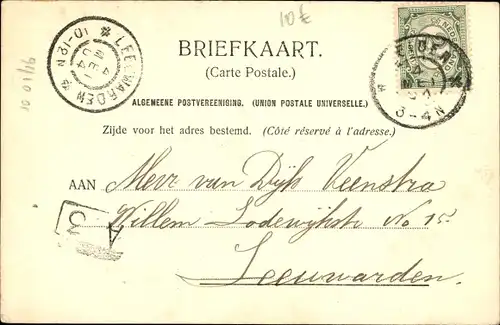 10 €
10 01/16
LEEUWARDEN
10-12N
4 MEI 04
3-4N
BRIEFKAART.
(Carte Postale.)
ALGEMEENE POSTVEREENIGING. (UNION POSTALE UNIVERSELLE.)
Zijde voor het adres bestemd. (Côté réservé à l'adresse.)
AAN Mevr van Dijk Veenstra
Willem Lodewijkstr No 15
Leeuwarden.
3